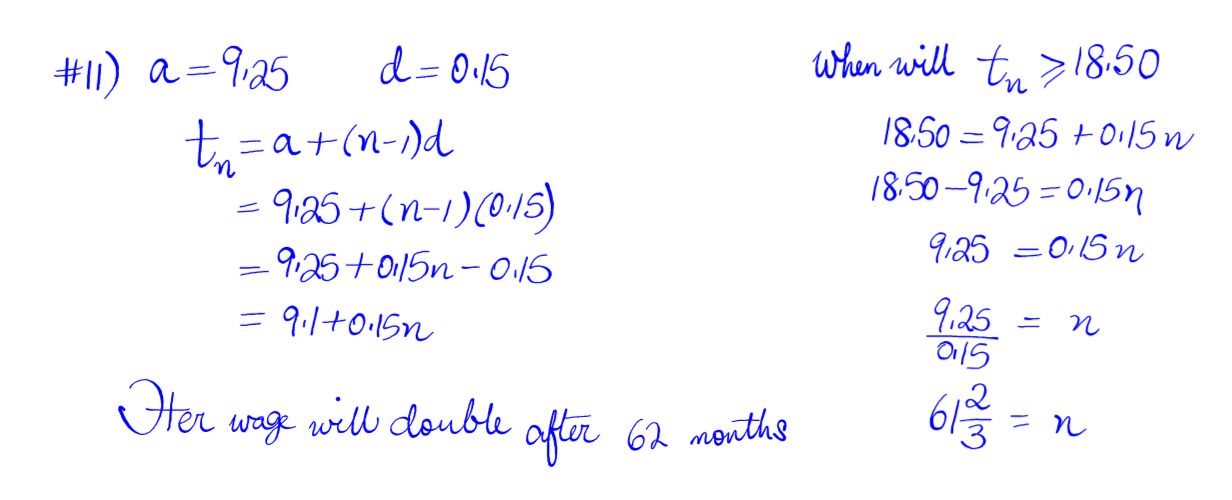 #11) a = 9.25 d = 0.15
tₙ = a + (n-1)d
= 9.25 + (n-1)(0.15)
= 9.25 + 0.15n - 0.15
= 9.1 + 0.15n
Her wage will double after 62 months
When will tₙ ⩾ 18.50
18.50 = 9.25 + 0.15n
18.50 - 9.25 = 0.15n
9.25 = 0.15n
9.25/0.15 = n
61 2/3 = n